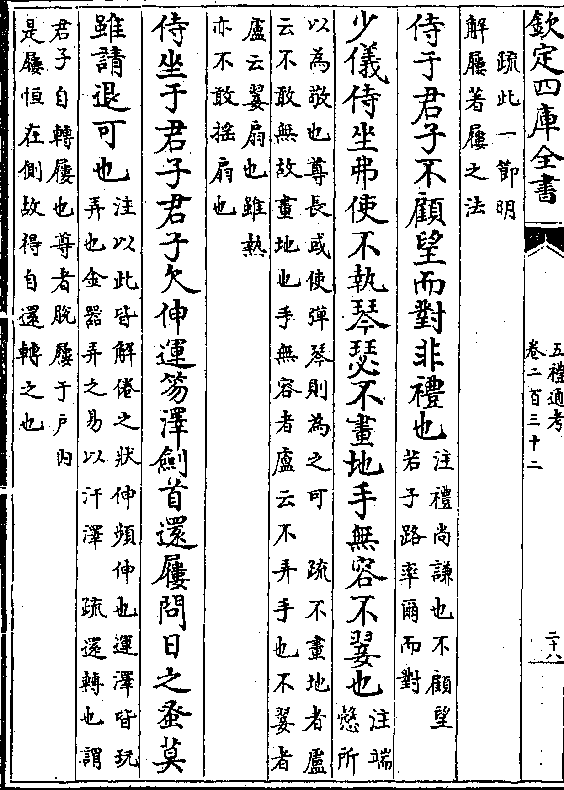 欽定四庫全書
五禮通考
卷二百三十二
二十八
疏此一節明
解屨著屨之法
侍于君子不顧望而對非禮也
注禮尚謙也不顧望
若子路率爾而對
少儀侍坐弗使不執琴瑟不畫地手無容不翣也
注端
慤所
以為敬也尊長或使彈琴則為之可 疏不畫地者盧
云不敢無故畫地也手無容者盧云不弄手也不翣者
盧云翣扇也雖熱
亦不敢揺扇也
侍坐于君子君子欠伸運笏澤劍首還屨問日之蚤莫
雖請退可也
注以此皆解倦之狀伸頻伸也運澤皆玩
弄也金器弄之易以汗澤 疏還轉也謂
君子自轉屨也尊者脫屨于户内
是屨恒在側故得自還轉之也